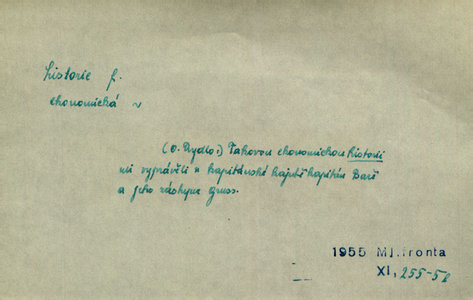 historie f.
ekonomická ~
(O. Rydlo:) Takovou ekonomickou historii
mi vyprávěli v kapitánské kajutě kapitán Bareš
a jeho zástupce
1955 Ml.fronta
XI, 255-5b